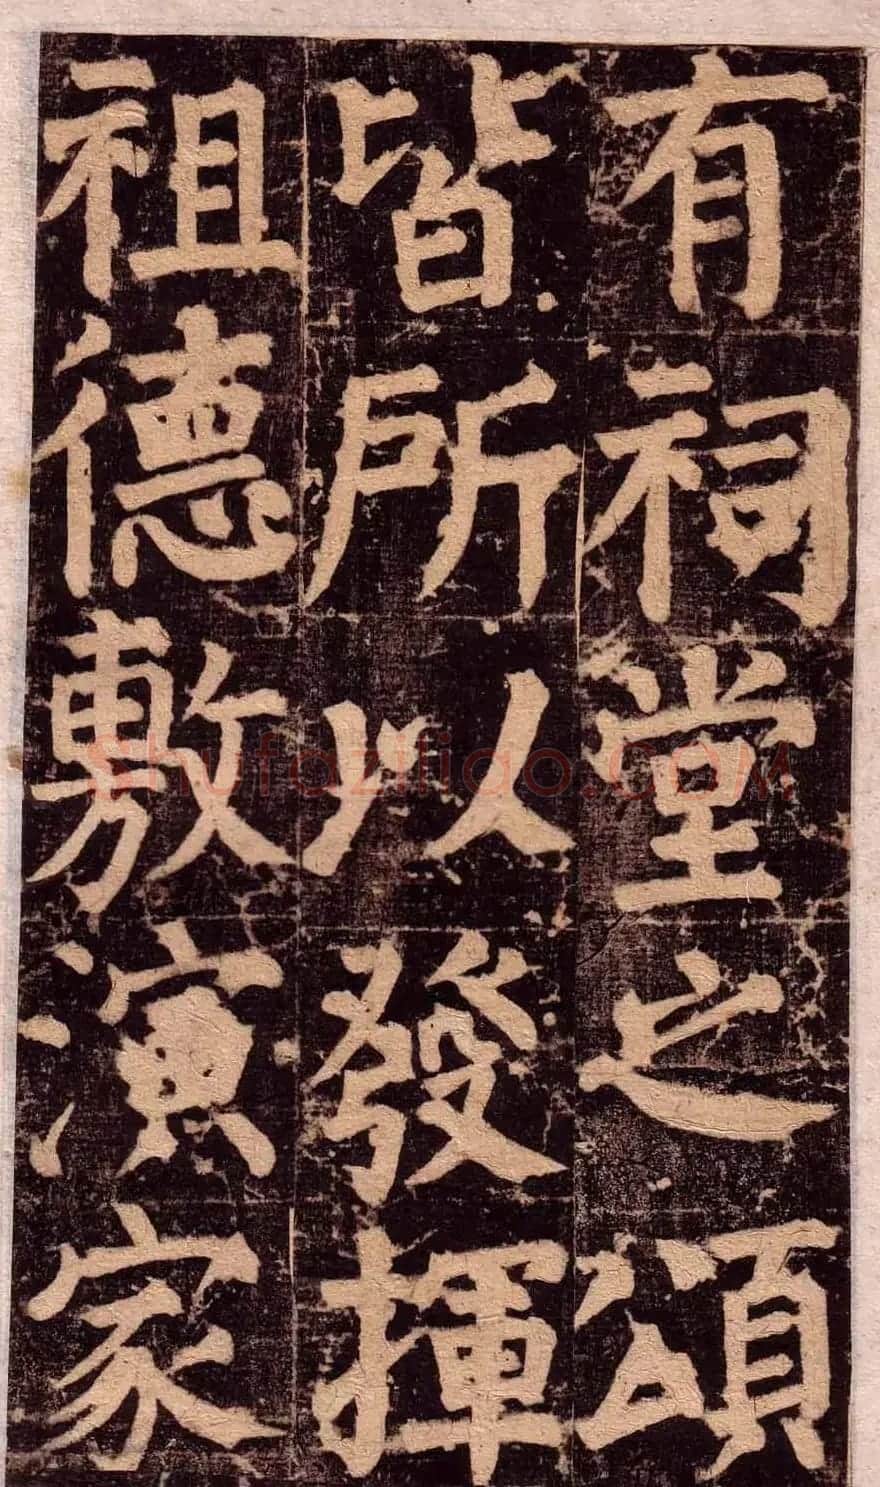 有祠堂之頌
皆所以發揮
祖德敷演家
Shufaziliao.COM